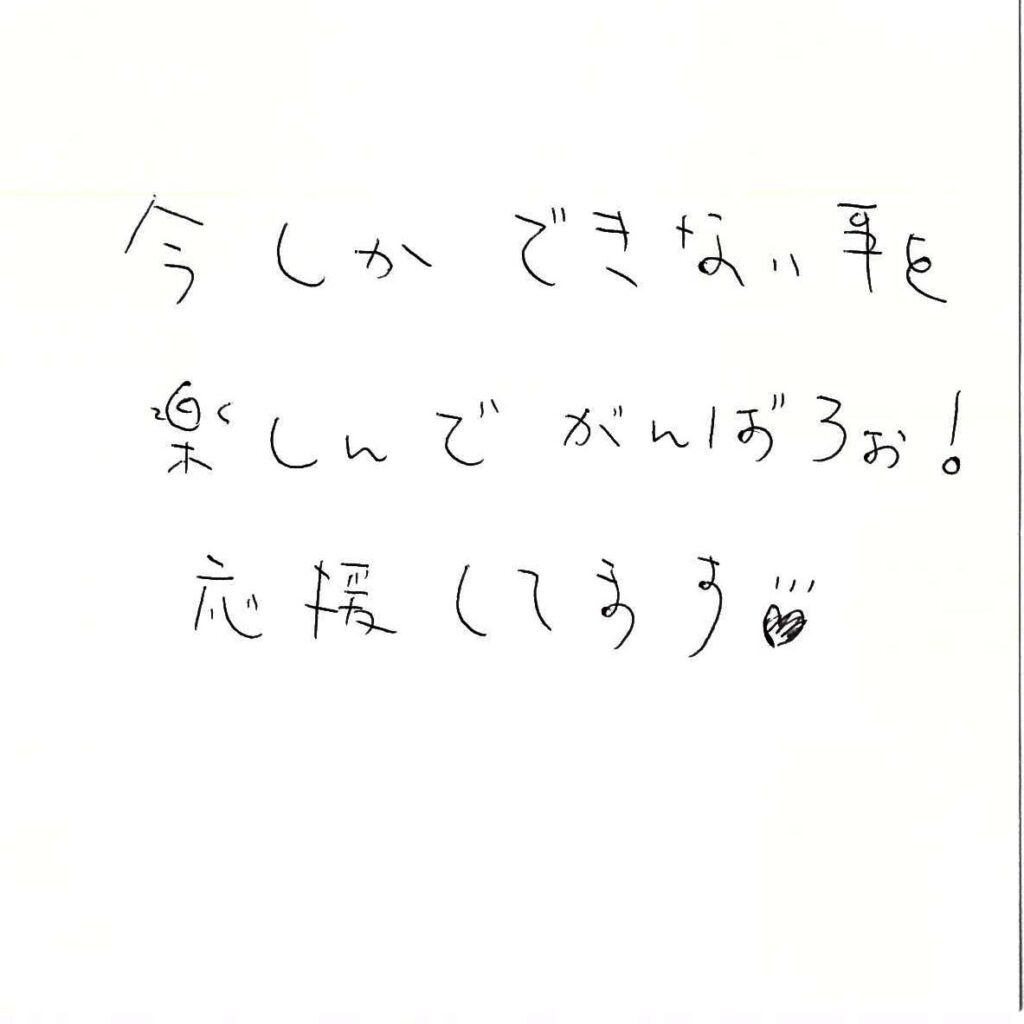 今しかできない事を
楽しんでがんばろぉ!
応援してます♥